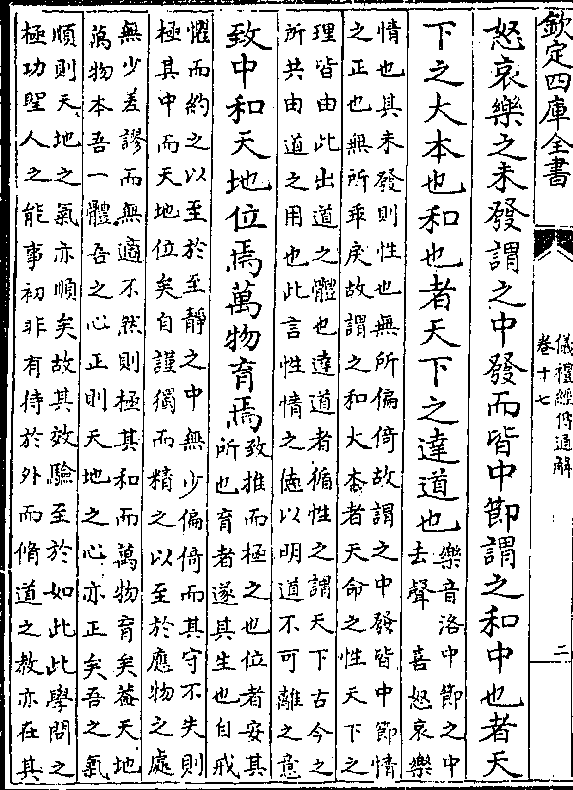 欽定四庫全書
儀禮經傳通解
卷十七
二
怒哀樂之未發謂之中發而皆中節謂之和中也者天
下之大本也和也者天下之達道也
樂音洛中節之中
去聲 喜怒哀樂
情也其未發則性也無所偏倚故謂之中發皆中節情
之正也無所乖戾故謂之和大本者天命之性天下之
理皆由此出道之體也達道者循性之謂天下古今之
所共由道之用也此言性情之德以明道不可離之意
致中和天地位焉萬物育焉
致推而極之也位者安其
所也育者遂其生也自戒
懼而約之以至於至靜之中無少偏倚而其守不失則
極其中而天地位矣自謹獨而精之以至於應物之處
無少差謬而無適不然則極其和而萬物育矣葢天地
萬物本吾一體吾之心正則天地之心亦正矣吾之氣
順則天地之氣亦順矣故其效驗至於如此此學問之
極功聖人之能事初非有待於外而脩道之教亦在其